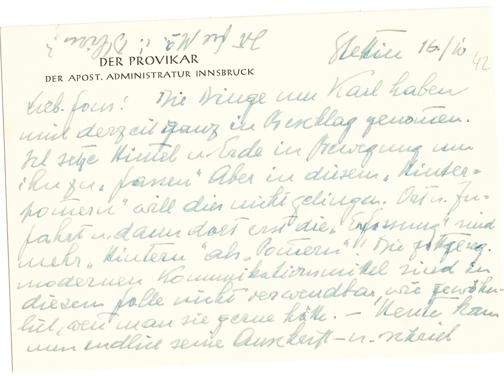 DER PROVIKAR
DER APOST. ADMINISTRATUR INNSBRUCK
Stettin 16./10
42
Lieb. Fons! Die Dinge um Karl haben
mich derzeit ganz in Beschlag genommen.
Ich setze Himmel u. Erde in Bewegung um
ihn zu „fassen“ Aber in diesem „Hinter-
pomern“ will dies nicht gelingen. Ort u. Zu-
fahrt u. dann dort erst die „Erfassung“ sind
mehr „Hintern“ als „Pomern“! Die
modernen Kommunikationsmittel sind in
diesem Falle nicht verwendbar, wie gewöhn-
lich, weil man sie gerne hätte. – Heute kam
nun endlich seine Anschrift – u. scheid